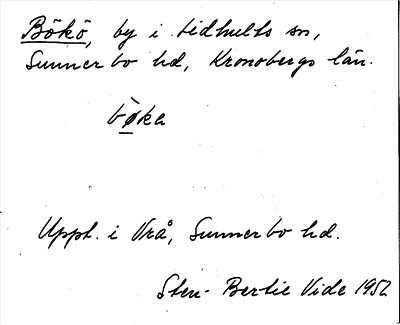 Bökö, by i Lidhults sn,
Sunnerbo hd, Kronobergs län.
bøka
Uppt. i Vrå, Sunnerbo hd.
Sten-Bertil Vide 1952